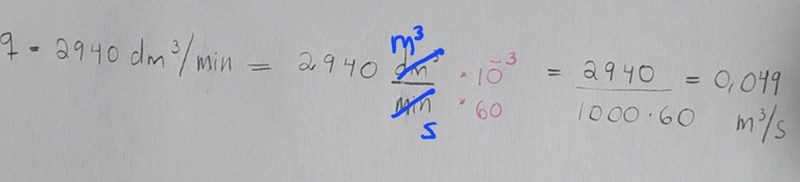 q = 2940 dm³/min = 2940 dm³/min m³/s · 10⁻³ · 60 = 2940/1000·60 = 0,049 m³/s